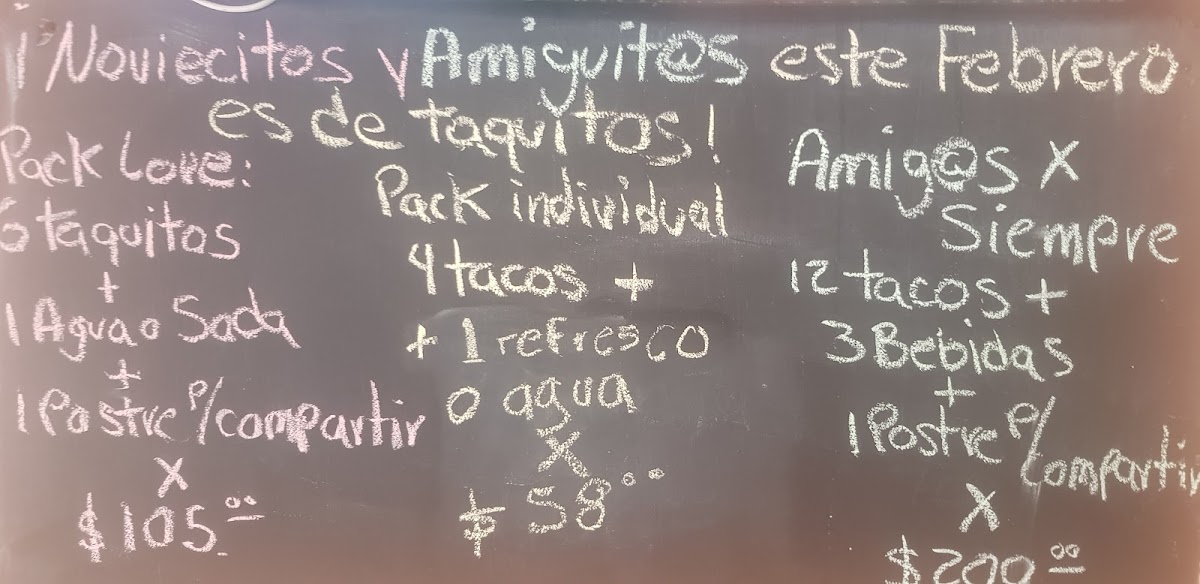 ¡Noviecitos y Amiguit@s este Febrero
es de taquitos!
Pack Love:
6 taquitos
+
1 Agua o Soda
+
1 Postre p/compartir
x
$105.00
Pack individual
4 tacos +
+ 1 refresco
o agua
x
$58.00
Amig@s x
Siempre
12 tacos +
3 Bebidas
+
1 Postre p/
compartir
x
$200.00